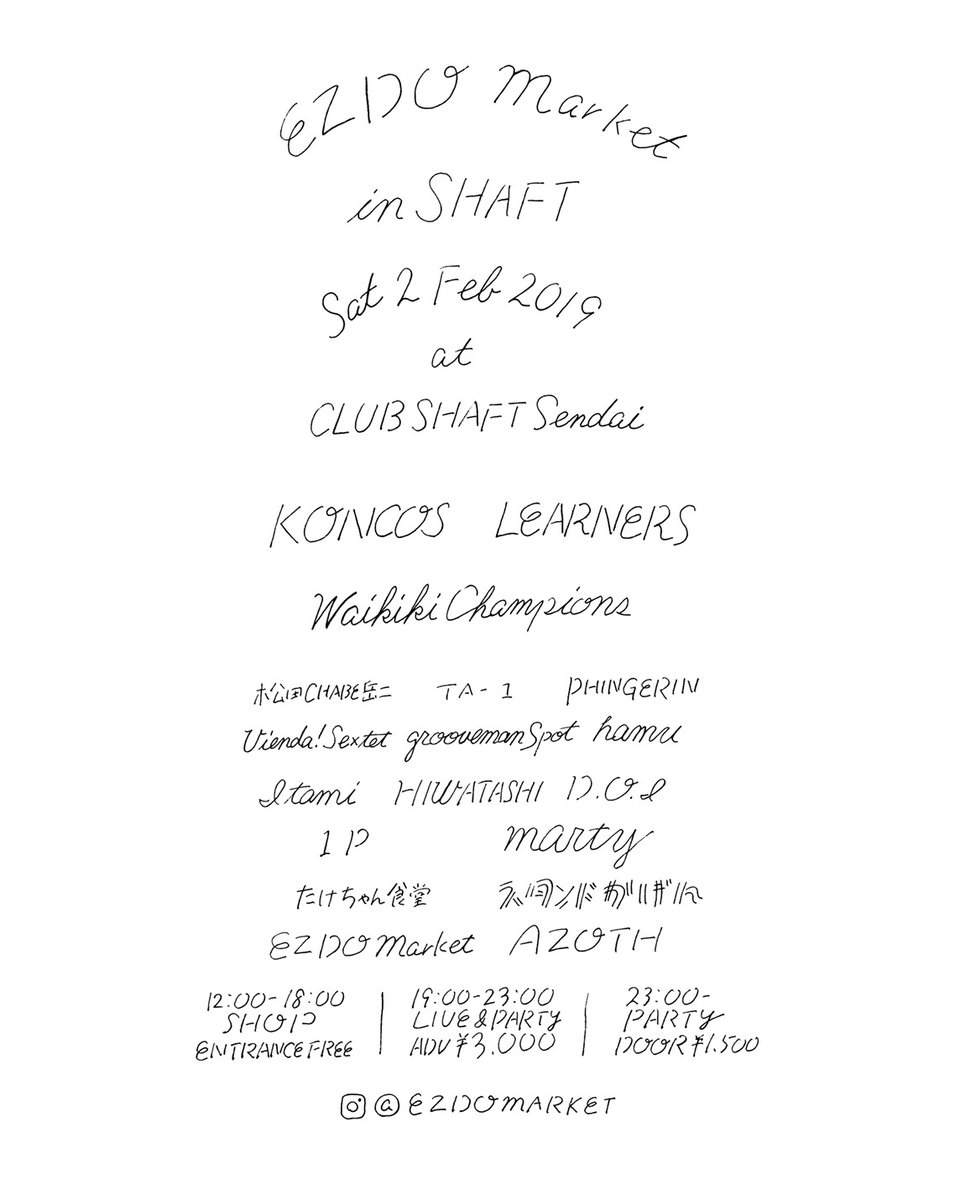 EZDO Market
in SHAFT
Sat 2 Feb 2019
at
CLUB SHAFT Sendai
KONCOS LEARNERS
Waikiki Champions
松田CHABE岳二 TA-1 PHINGERIN
Vienda!Sextet groovemanSpot hamu
Itami HIWATASHI D.O.I
1P marty
たけちゃん食堂
EZDO Market AZOTH
12:00-18:00
SHOP
ENTRANCE FREE
19:00-23:00
LIVE&PARTY
ADV¥3.000
23:00-
PARTY
DOOR¥1.500
@EZDOMARKET